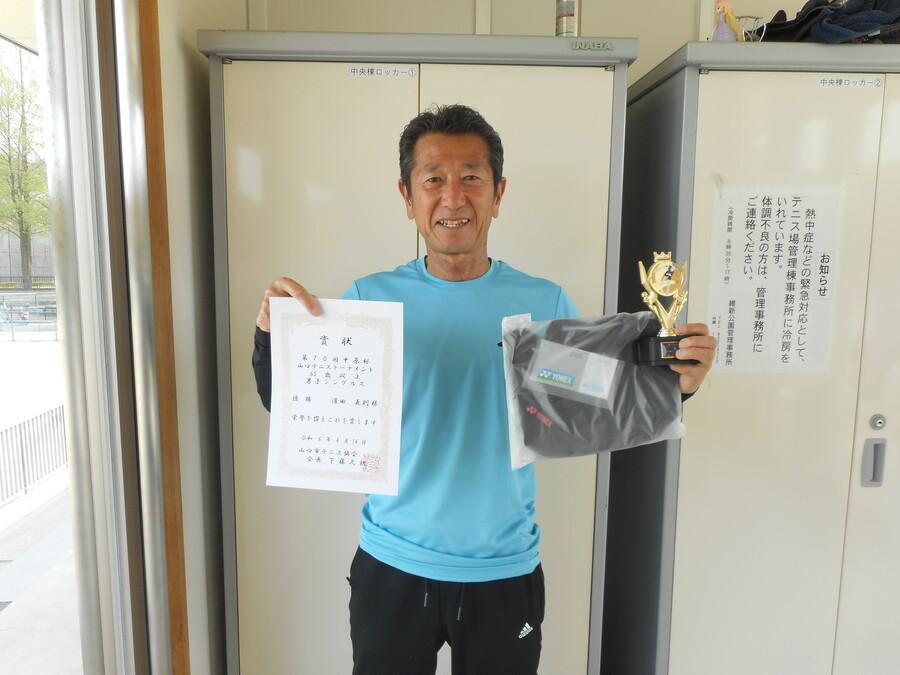 INABA
中央棟ロッカー①
中央棟ロッカー②
お知らせ
熱中症などの緊急対応として、
テニス場管理棟事務所に冷房を
いれています。
体調不良の方は、管理事務所に
ご連絡ください。
維新公園管理事務所
賞状
第70回中原杯
山口テニストーナメント
65歳以上
男子シングルス
優勝 濱田 義則様
栄誉を讃えこれを賞します
令和6年4月14日
山口市テニス協会
YONEX
YONEX
adidas